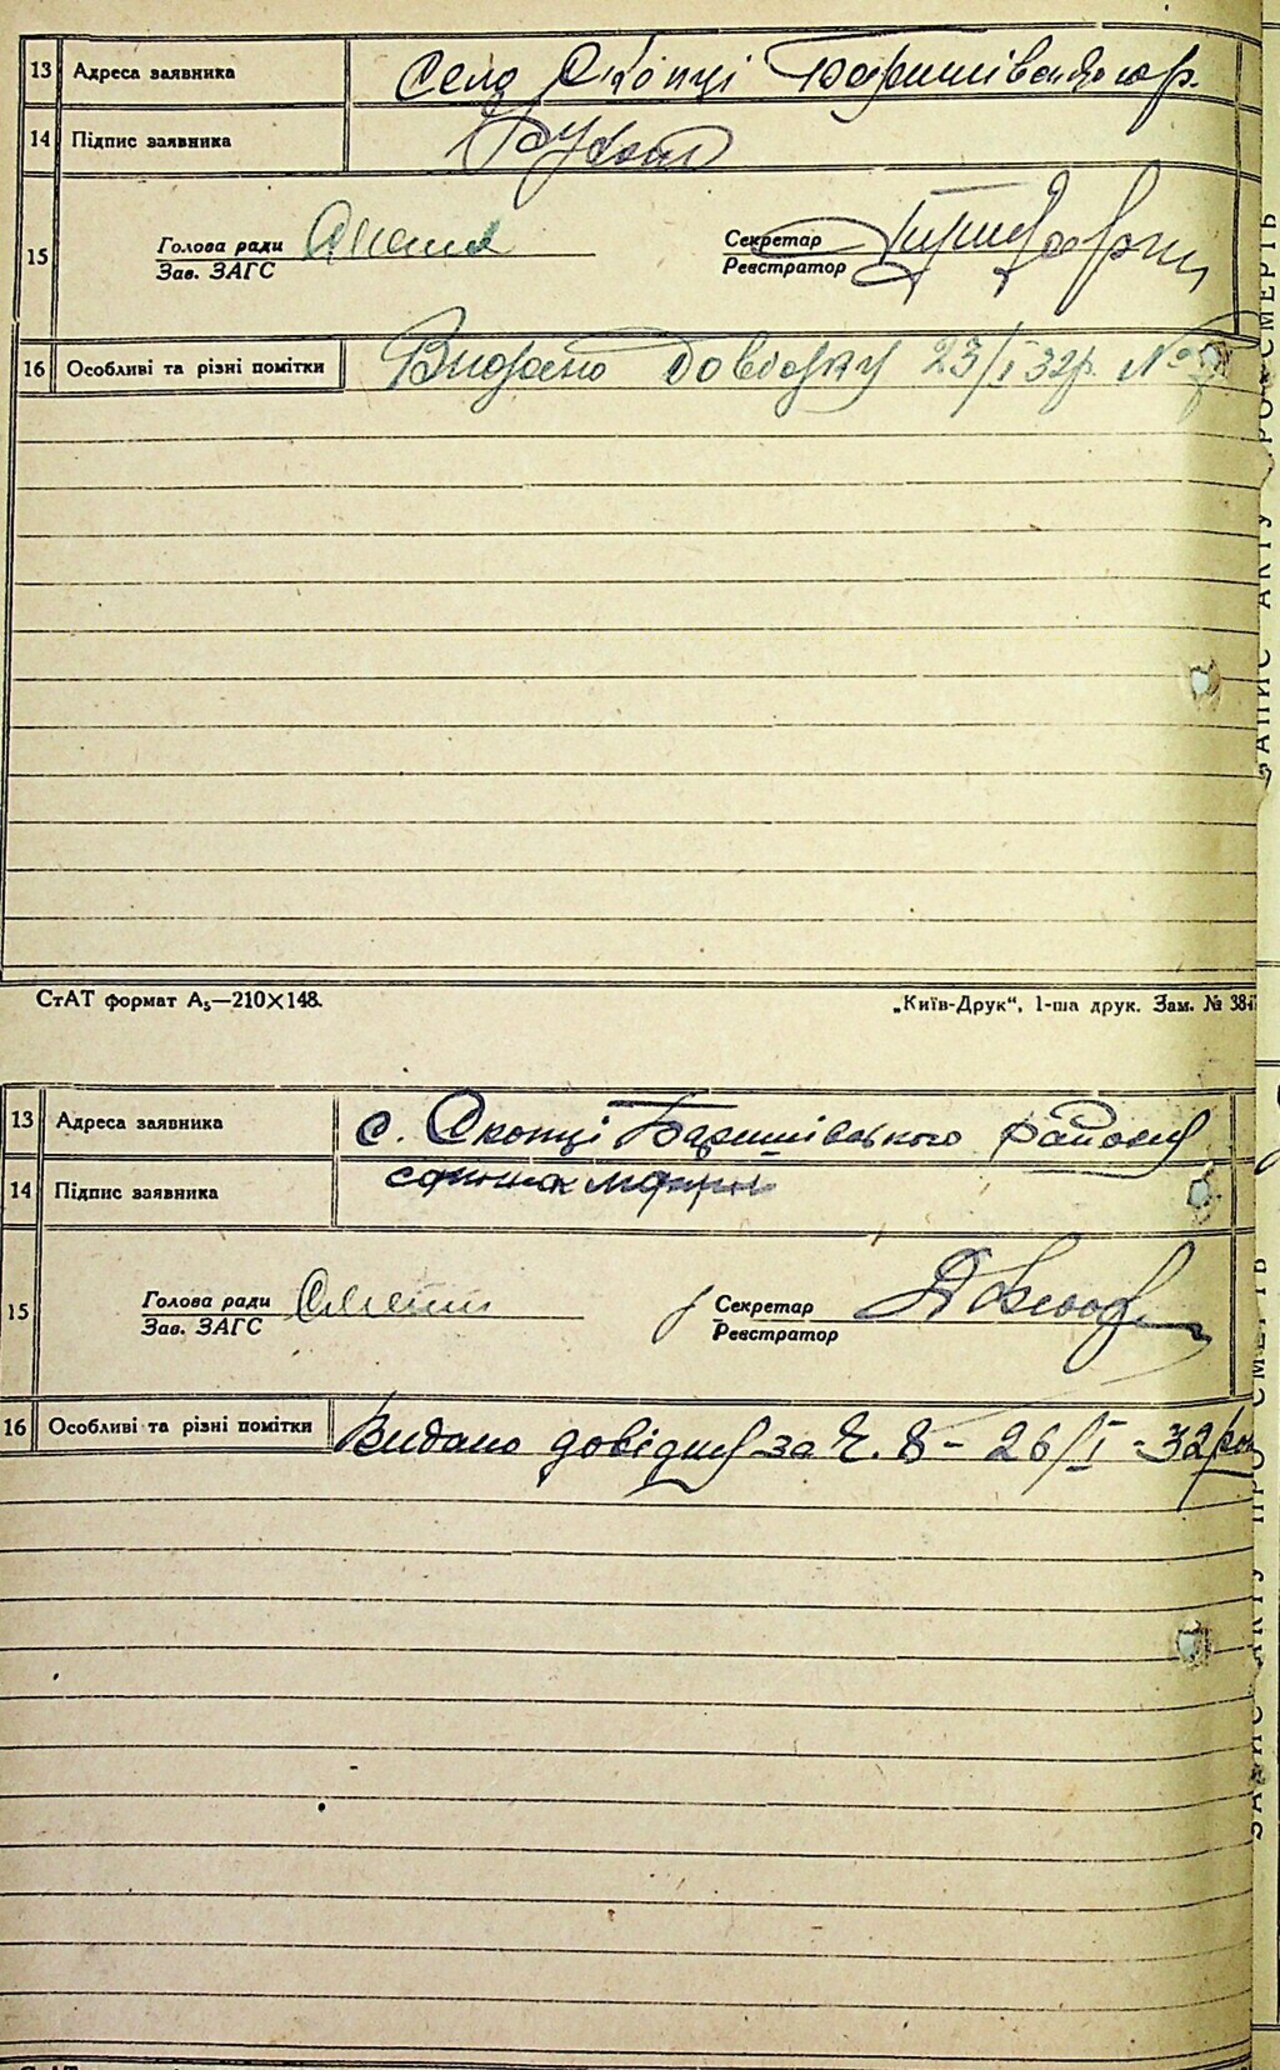 13 Адреса заявника Село Скопці Баришівського р.
14 Підпис заявника
15 Голова ради Секретар
Зав. ЗАГС Реєстратор
16 Особливі та різні помітки Видано довідку 23/I 32р. №
СтАТ формат А₅—210×148.
„Київ-Друк“, 1-ша друк. Зам. № 38
13 Адреса заявника с. Скопці Баришівського району
14 Підпис заявника
15 Голова ради Секретар
Зав. ЗАГС Реєстратор
16 Особливі та різні помітки Видано довідку за Ч. 8 - 26/I - 32
ЗАПИС АКТУ ПРО СМЕРТЬ
ЗАПИС АКТУ ПРО СМЕРТЬ